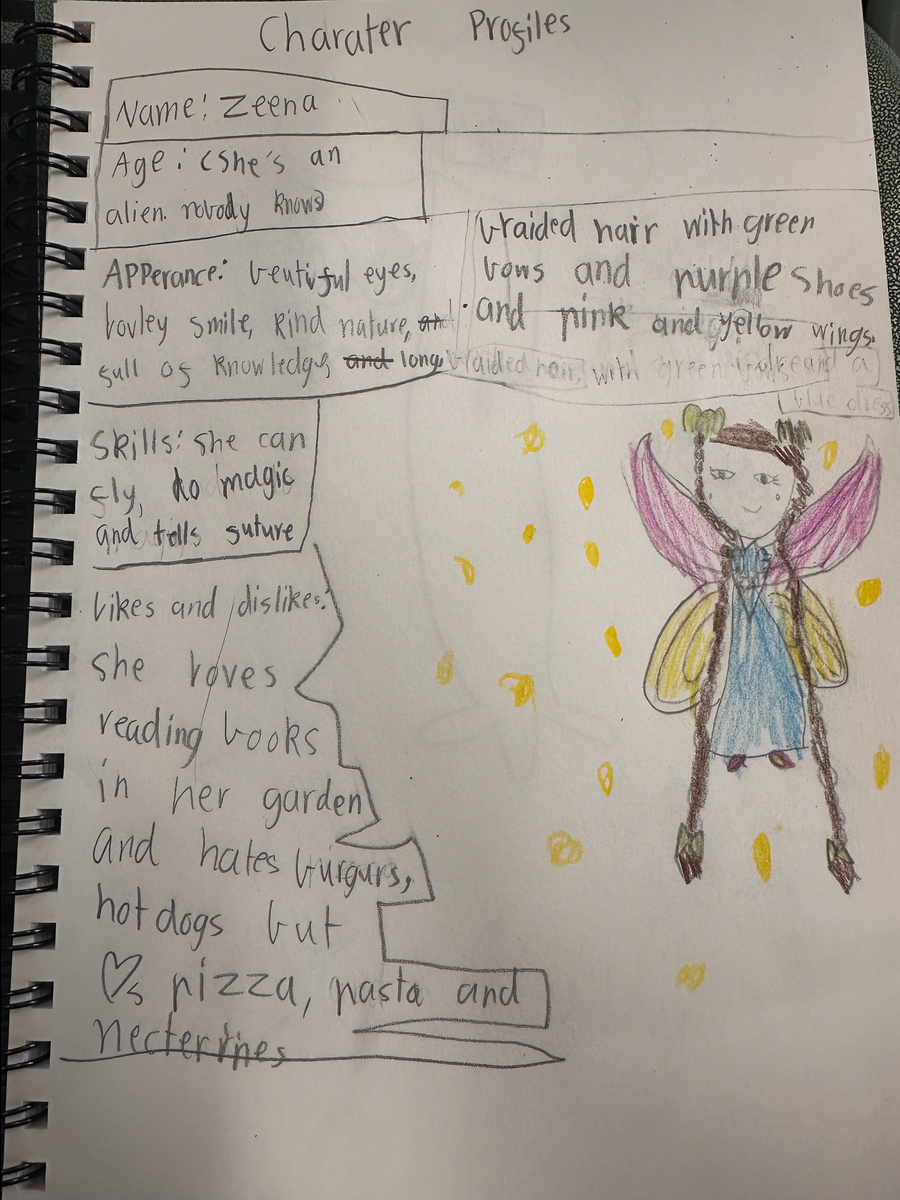 Charater Profiles
Name: Zeena
Age: (She's an
alien. nobody knows)
Apperance: beutiful eyes,
lovley smile, kind nature, and
full of knowledge, and long
braided hair with green
bows and purple shoes
and pink and yellow wings.
braided hair, with green
blue dress
Skills: she can
fly, do magic
and tells future
likes and dislikes:
she loves
reading books
in her garden
and hates burgurs,
hotdogs but
♡s pizza, pasta and
necterines